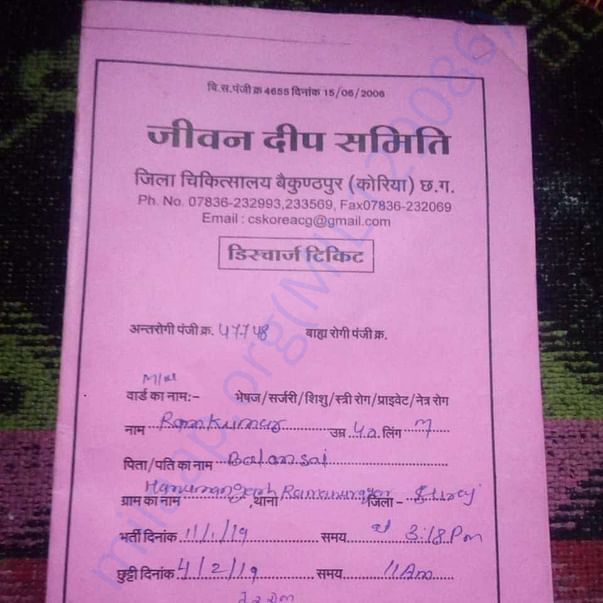 चि.स.पंजी क्र 4655 दिनांक 15/06/2006
जीवन दीप समिति
जिला चिकित्सालय बैकुण्ठपुर (कोरिया) छ.ग.
Ph. No. 07836-232993,233569, Fax07836-232069
Email : cskoreacg@gmail.com
डिस्चार्ज टिकिट
अन्तरोगी पंजी क्र. 47748 वाह्य रोगी पंजी क्र.
वार्ड का नाम:- भेषज/सर्जरी/शिशु/स्त्री रोग/प्राइवेट/नेत्र रोग
नाम Ramkumar उम्र लिंग M
पिता/पति का नाम Balamsai
ग्राम का नाम थाना जिला -
भर्ती दिनांक 11/1/19 समय at 3:18 Pm
छुट्टी दिनांक 4/2/19 समय 11 Am
milap.org(MILL